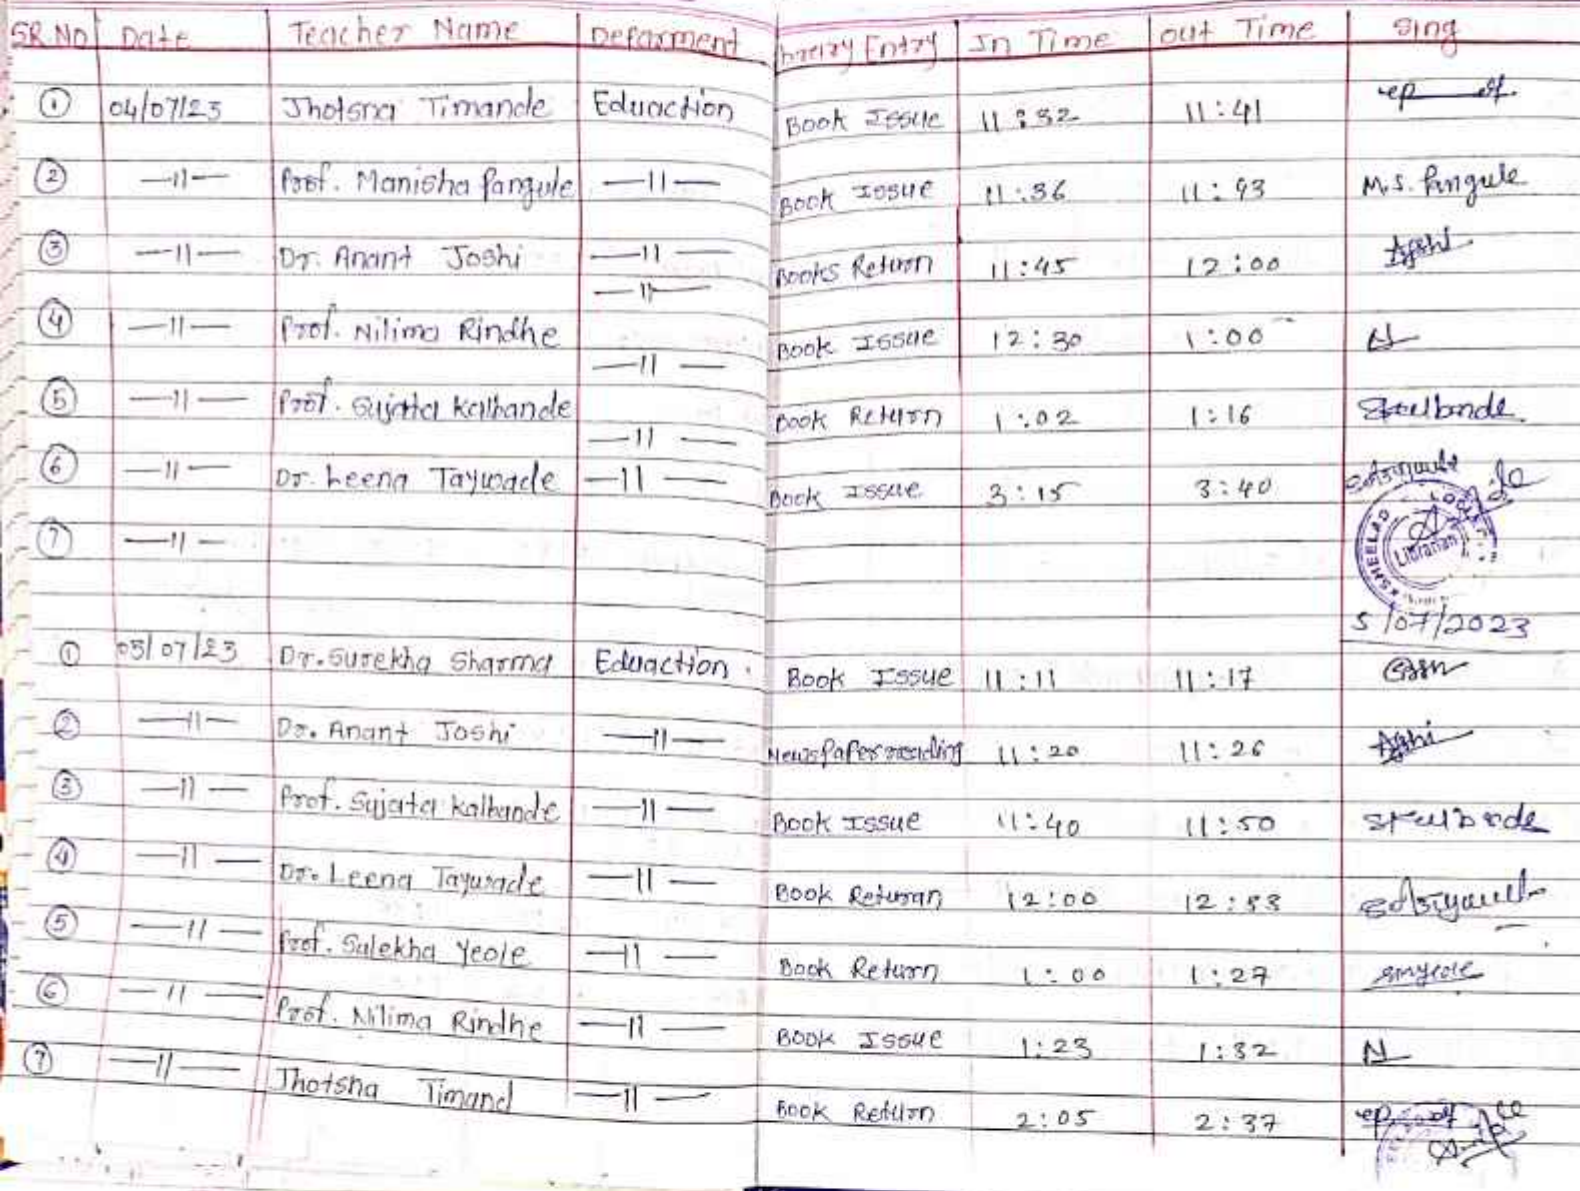 SR NO Date Teacher Name Deparment brary Entry In Time out Time Sing
① 04/07/23 Jhotsna Timande Eduaction Book Issue 11:32 11:41
② —11— Prof. Manisha Pangule —11— Book Issue 11:36 11:43 M.S. Pangule
③ —11— Dr. Anant Joshi —11— Books Return 11:45 12:00 Joshi
—11—
④ —11— Prof. Nilima Rindhe —11— Book Issue 12:30 1:00 N
⑤ —11— Prof. Sujata Kalbande —11— Book Return 1:02 1:16
⑥ —11— Dr. Leena Taywade —11— Book Issue 3:15 3:40
⑦ —11—
KSHEELAD
Librarian
5/07/2023
① 05/07/23 Dr. Surekha Sharma Eduaction Book Issue 11:11 11:17
② —11— Dr. Anant Joshi —11— Newspaper reading 11:20 11:26 Joshi
③ —11— Prof. Sujata Kalbande —11— Book Issue 11:40 11:50
④ —11— Dr. Leena Taywade —11— Book Returan 12:00 12:53
⑤ —11— Prof. Sulekha Yeole —11— Book Return 1:00 1:27 smyeole
⑥ —11— Prof. Nilima Rindhe —11— Book Issue 1:23 1:32 N
⑦ —11— Jhotsna Timand —11— Book Return 2:05 2:37